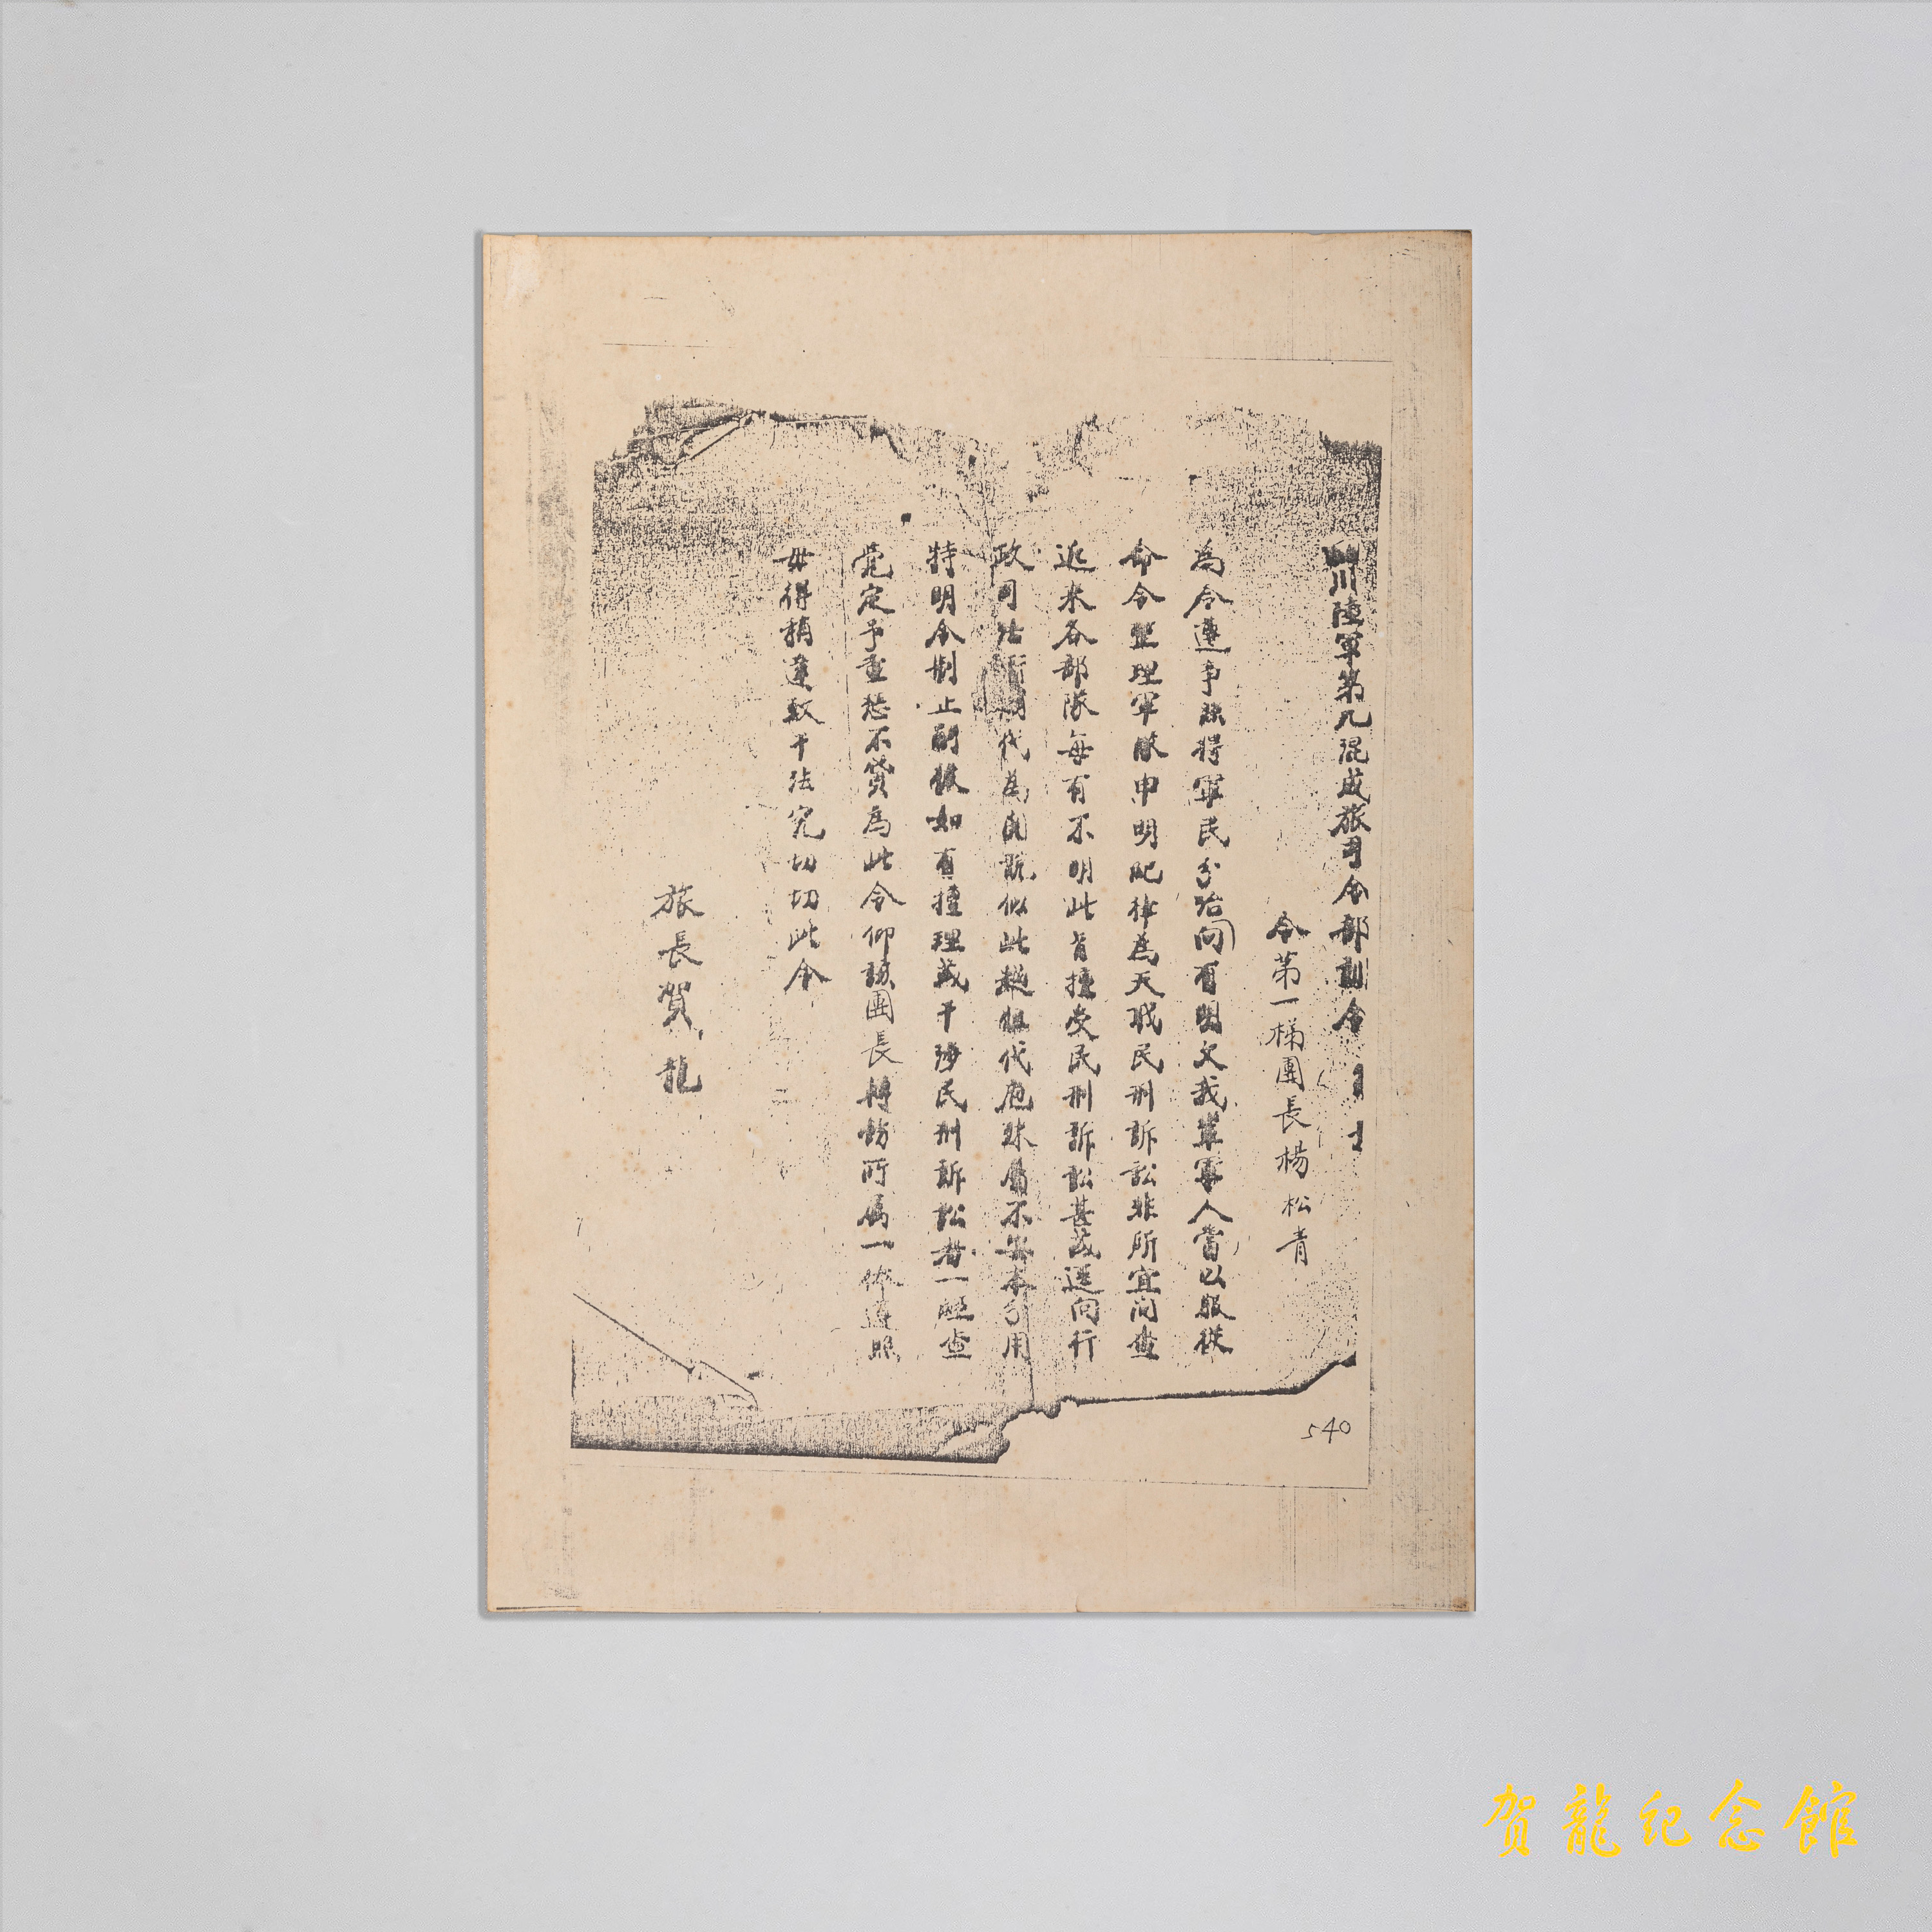 川陸軍第九混成旅司令部訓令
令第一梯團長楊松青
為令遵事照得軍民分治向有明文我輩軍人當以服從
命令整理軍隊申明紀律為天職民刑訴訟非所宜問查
近来各部隊每有不明此旨擅受民刑訴訟甚或逕向行
政司法代為似此越俎代庖殊屬不安本分用
特明令制止嗣後如有擅理或干涉民刑訴訟者一經查
覺定予重懲不貸為此令仰該團長轉飭所屬一体遵照
毋得稍違致干法究切切此令
旅長賀龍
540
贺龍纪念館